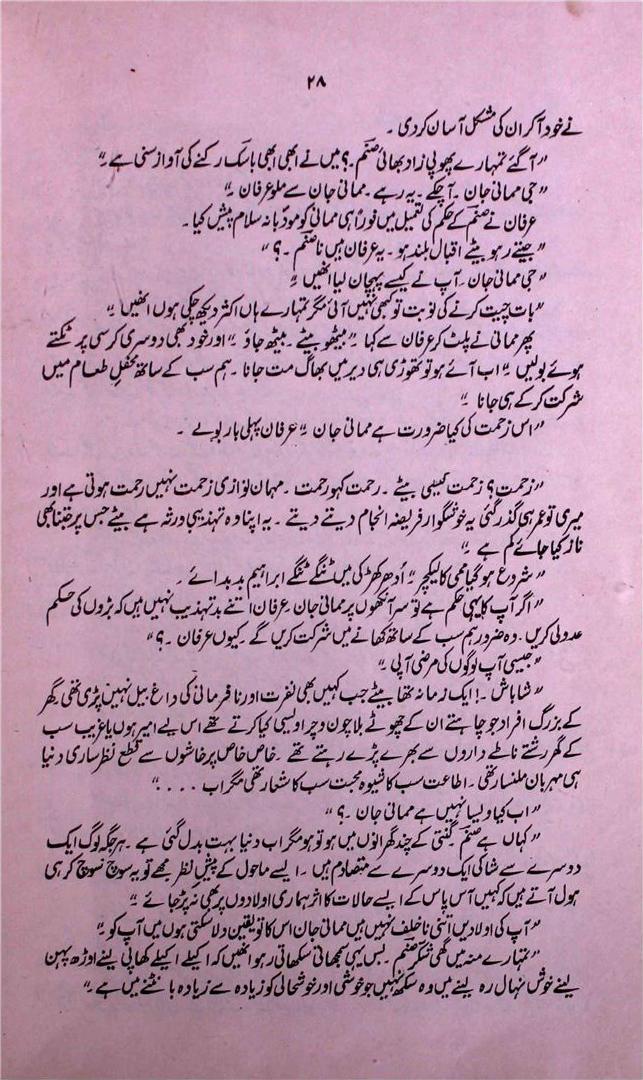 ۲۸
نے خود آکر ان کی مشکل آسان کر دی ۔
"آ گئے تمہارے پھوپی زاد بھائی صنم ۔؟ میں نے ابھی ابھی بائک رکنے کی آواز سنی ہے ۔"
"جی ممانی جان ۔ آ چکے ۔ یہ رہے ۔ ممانی جان سے ملو عرفان ۔"
عرفان نے صنم کے حکم کی تعمیل میں فوراً ہی ممانی کو مودّبانہ سلام پیش کیا ۔
"جیتے رہو بیٹے اقبال بلند ہو ۔ یہ عرفان ہیں نا صنم ۔؟"
"جی ممانی جان ۔ آپ نے کیسے پہچان لیا انھیں ۔"
"بات چیت کرنے کی نوبت تو کبھی نہیں آئی مگر تمہارے ہاں اکثر دیکھ چکی ہوں انھیں ۔"
پھر ممانی نے پلٹ کر عرفان سے کہا ۔ "بیٹھو بیٹے ۔ بیٹھ جاؤ ۔" اور خود بھی دوسری کرسی پر ٹکتے
ہوئے بولیں ۔ "اب آئے ہو تو تھوڑی ہی دیر میں بھاگ مت جانا ۔ ہم سب کے ساتھ محفلِ طعام میں
شرکت کر کے ہی جانا ۔"
"اس زحمت کی کیا ضرورت ہے ممانی جان ۔" عرفان پہلی بار بولے ۔
"زحمت؟ زحمت کیسی بیٹے ۔ رحمت کہو رحمت ۔ مہمان نوازی زحمت نہیں رحمت ہوتی ہے اور
میری تو عمر ہی گذر گئی یہ خوشگوار فریضہ انجام دیتے دیتے ۔ یہ اپنا وہ تہذیبی ورثہ ہے بیٹے جس پر جتنا بھی
ناز کیا جائے کم ہے ۔"
"شروع ہو گیا ممی کا لیکچر ۔" اُدھر کھڑکی میں ٹنگے ٹنگے ابراہیم بدبدائے ۔
"اگر آپ کا یہی حکم ہے تو سر آنکھوں پر ممانی جان ۔ عرفان اتنے بد تہذیب نہیں ہیں کہ بڑوں کی حکم
عدولی کریں ۔ وہ ضرور ہم سب کے ساتھ کھانے میں شرکت کریں گے ۔ کیوں عرفان ۔؟"
"جیسی آپ لوگوں کی مرضی آپی ۔"
"شاباش ۔! ایک زمانہ تھا بیٹے جب کہیں بھی نفرت اور نافرمانی کی داغ بیل نہیں پڑی تھی ۔ گھر
کے بزرگ افراد جو چاہتے ان کے چھوٹے بلا چون و چرا ویسی کیا کرتے تھے اس لیے امیر ہوں یا غریب سب
کے گھر رشتے ناطے داروں سے بھرے پڑے رہتے تھے ۔ خاص خاص پرخاشوں سے قطع نظر ساری دنیا
ہی مہربان ملنسار تھی ۔ اطاعت سب کا شیوہ محبت سب کا شعار تھی مگر اب . . . ."
"اب کیا ویسا نہیں ہے ممانی جان ۔؟"
"کہاں ہے صنم ۔ گنتی کے چند گھرانوں میں ہو تو ہو مگر اب دنیا بہت بدل گئی ہے ۔ ہر جگہ لوگ ایک
دوسرے سے شاکی ایک دوسرے سے متصادم ہیں ۔ ایسے ماحول کے پیشِ نظر مجھے تو یہ سوچ سوچ کر ہی
ہول آتے ہیں کہ کہیں آس پاس کے ایسے حالات کا اثر ہماری اولادوں پر بھی نہ پڑ جائے ۔"
"آپ کی اولادیں اتنی ناخلف نہیں ہیں ممانی جان اس کا تو یقین دلا سکتی ہوں میں آپ کو ۔"
"تمہارے منہ میں گھی شکر صنم ۔ بس یہی سمجھاتی سکھاتی رہو انھیں کہ اکیلے اکیلے کھا پی لینے اوڑھ پہن
لینے خوش نہال رہ لینے میں وہ سکھ نہیں جو خوشی اور خوشحالی کو زیادہ سے زیادہ بانٹنے میں ہے ۔"